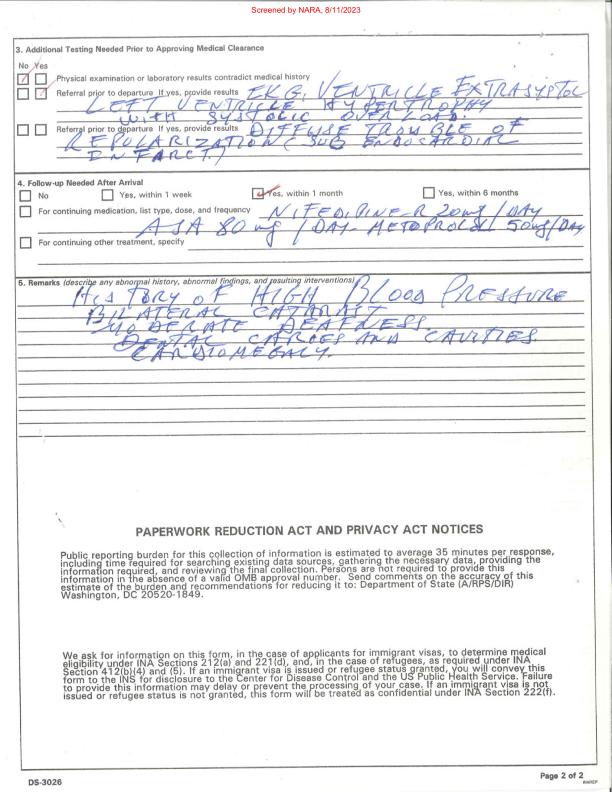 Screened by NARA, 8/11/2023
3. Additional Testing Needed Prior to Approving Medical Clearance
No Yes
Physical examination or laboratory results contradict medical history
Referral prior to departure If yes, provide results EKG, VENTRICLE EXTRASYSTOL
LEFT VENTRICLE HYPERTROPHY
WITH SYSTOLIC OVERLOAD.
Referral prior to departure If yes, provide results DIFFUSE TROUBLE OF
REPOLARIZATION (SUB ENDOCARDIAL
INFARCT)
4. Follow-up Needed After Arrival
No Yes, within 1 week Yes, within 1 month Yes, within 6 months
For continuing medication, list type, dose, and frequency NIFEDIPINE-R 20mg/DAY
ASA 80mg /DAY- METOPROLOL 50mg/DAY
For continuing other treatment, specify
5. Remarks (describe any abnormal history, abnormal findings, and resulting interventions)
HISTORY OF HIGH BLOOD PRESSURE
BILATERAL CATARAST
MODERATE DEAFNESS.
DENTAL CARCES AND CAVITIES.
CARDIOMEGALY.
PAPERWORK REDUCTION ACT AND PRIVACY ACT NOTICES
Public reporting burden for this collection of information is estimated to average 35 minutes per response,
including time required for searching existing data sources, gathering the necessary data, providing the
information required, and reviewing the final collection. Persons are not required to provide this
information in the absence of a valid OMB approval number. Send comments on the accuracy of this
estimate of the burden and recommendations for reducing it to: Department of State (A/RPS/DIR)
Washington, DC 20520-1849.
We ask for information on this form, in the case of applicants for immigrant visas, to determine medical
eligibility under INA Sections 212(a) and 221(d), and, in the case of refugees, as required under INA
Section 412(b)(4) and (5). If an immigrant visa is issued or refugee status granted, you will convey this
form to the INS for disclosure to the Center for Disease Control and the US Public Health Service. Failure
to provide this information may delay or prevent the processing of your case. If an immigrant visa is not
issued or refugee status is not granted, this form will be treated as confidential under INA Section 222(f).
DS-3026
Page 2 of 2